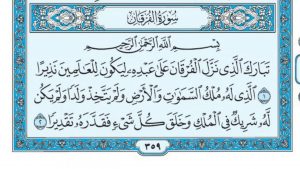 سُورَةُ الفُرْقَانِ
بِسْمِ اللَّهِ الرَّحْمَٰنِ الرَّحِيمِ
تَبَارَكَ الَّذِي نَزَّلَ الْفُرْقَانَ عَلَىٰ عَبْدِهِ لِيَكُونَ لِلْعَالَمِينَ نَذِيرًا
١ الَّذِي لَهُ مُلْكُ السَّمَٰوَٰتِ وَالْأَرْضِ وَلَمْ يَتَّخِذْ وَلَدًا وَلَمْ يَكُن
لَّهُ شَرِيكٌ فِي الْمُلْكِ وَخَلَقَ كُلَّ شَيْءٍ فَقَدَّرَهُ تَقْدِيرًا ٢
٣٥٩